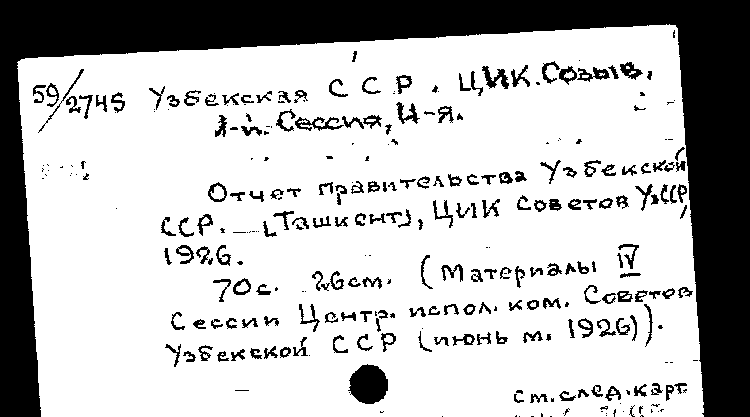 59/2745 Узбекская ССР. ЦИК. Созыв,
1-й. Сессия, 4-я.
Отчет правительства Узбекской
ССР. — [Ташкент], ЦИК Советов УзССР,
1926.
70с. 26см. (Материалы IV
Сессии Центр. испол. ком. Советов
Узбекской ССР (июнь м. 1926)).
см. след. карт